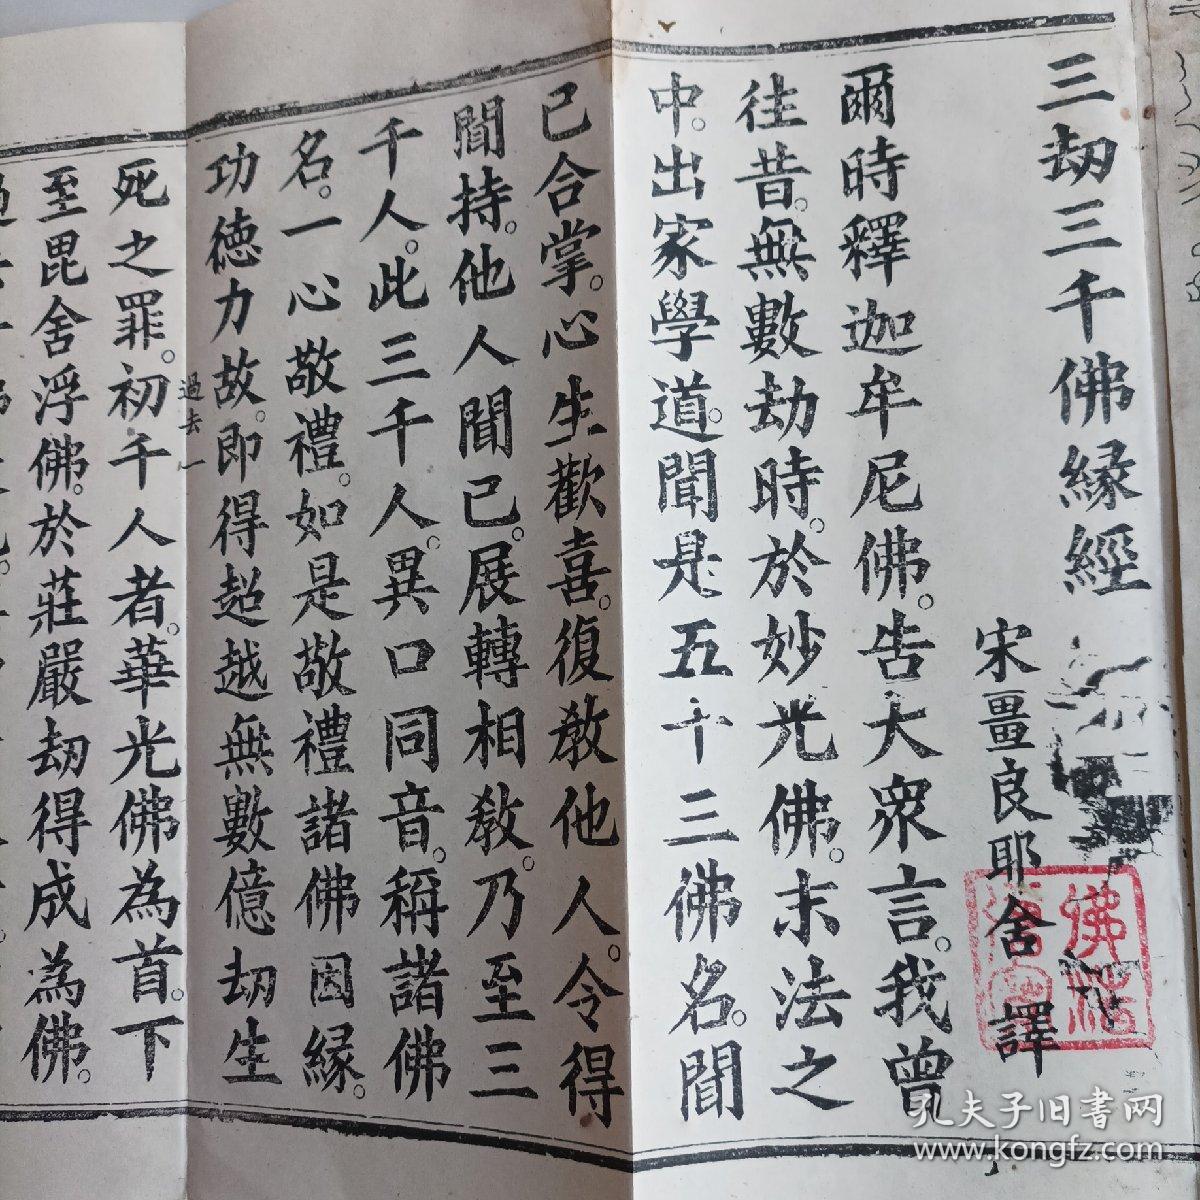 三劫三千佛緣經
宋畺良耶舍譯
爾時釋迦牟尼佛。告大衆言。我曾
往昔。無數劫時。於妙光佛。末法之
中。出家學道。聞是五十三佛名。聞
已合掌。心生歡喜。復教他人。令得
聞持。他人聞已。展轉相教。乃至三
千人。此三千人。異口同音。稱諸佛
名。一心敬禮。如是敬禮諸佛因緣。
功德力故。即得超越無數億劫生
過去一
死之罪。初千人者。華光佛為首。下
至毘舍浮佛。於莊嚴劫得成為佛。
孔夫子旧书网
www.kongfz.com